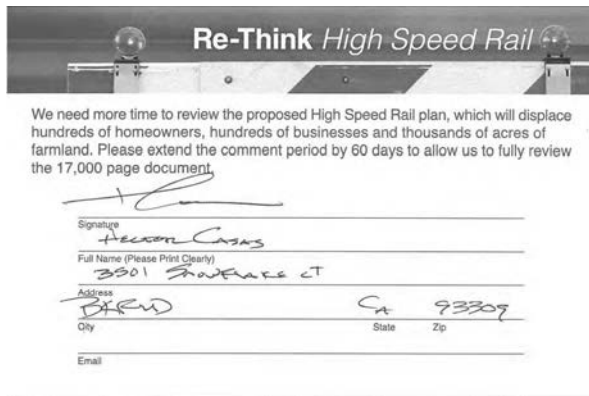 Re-Think High Speed Rail
We need more time to review the proposed High Speed Rail plan, which will displace
hundreds of homeowners, hundreds of businesses and thousands of acres of
farmland. Please extend the comment period by 60 days to allow us to fully review
the 17,000 page document.
Signature
Hector Casas
Full Name (Please Print Clearly)
3501 Snowflake CT
Address
BAKD CA 93309
City State Zip
Email